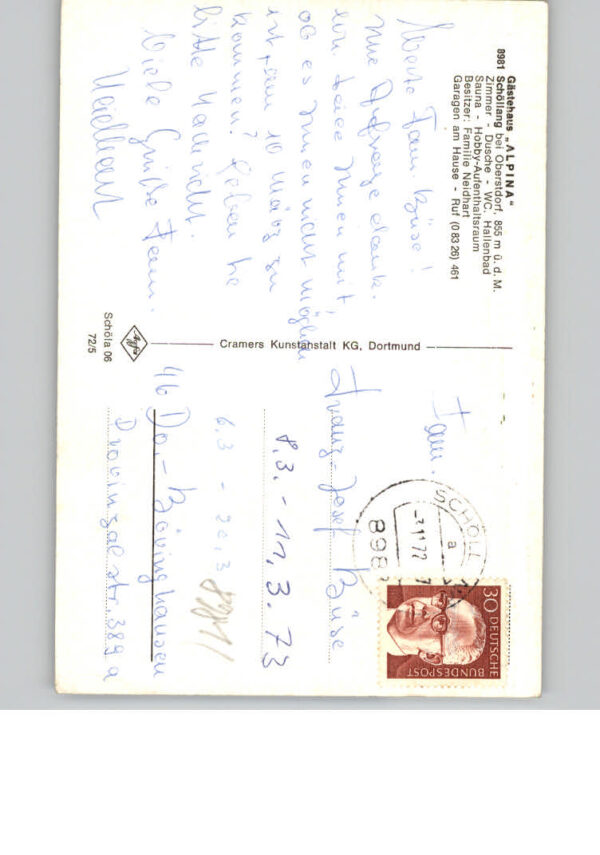 Gästehaus „ALPINA“
8981 Schöllang bei Oberstdorf, 855 m ü. d. M.
Zimmer - Dusche - WC, Hallenbad
Sauna - Hobby-Aufenthaltsraum
Besitzer: Familie Neidhart
Garagen am Hause - Ruf (0 83 26) 461
Werte Fam. Büse!
Ihre Anfrage dank.
teile Ihnen mit,
ob es Ihnen nicht möglich
ist am 10 März zu
kommen? Geben Sie
bitte Nachricht.
Viele Grüße Fam.
Neidhart
Cramers Kunstanstalt KG, Dortmund
Schöla 06
72/5
SCHÖLL
a
898
30 DEUTSCHE
BUNDESPOST
Fam.
Franz-Josef Büse
8.3. - 11.3.73
6.3 - 20.3
46 Do.- Bövinghausen
Provinzialstr. 389 a